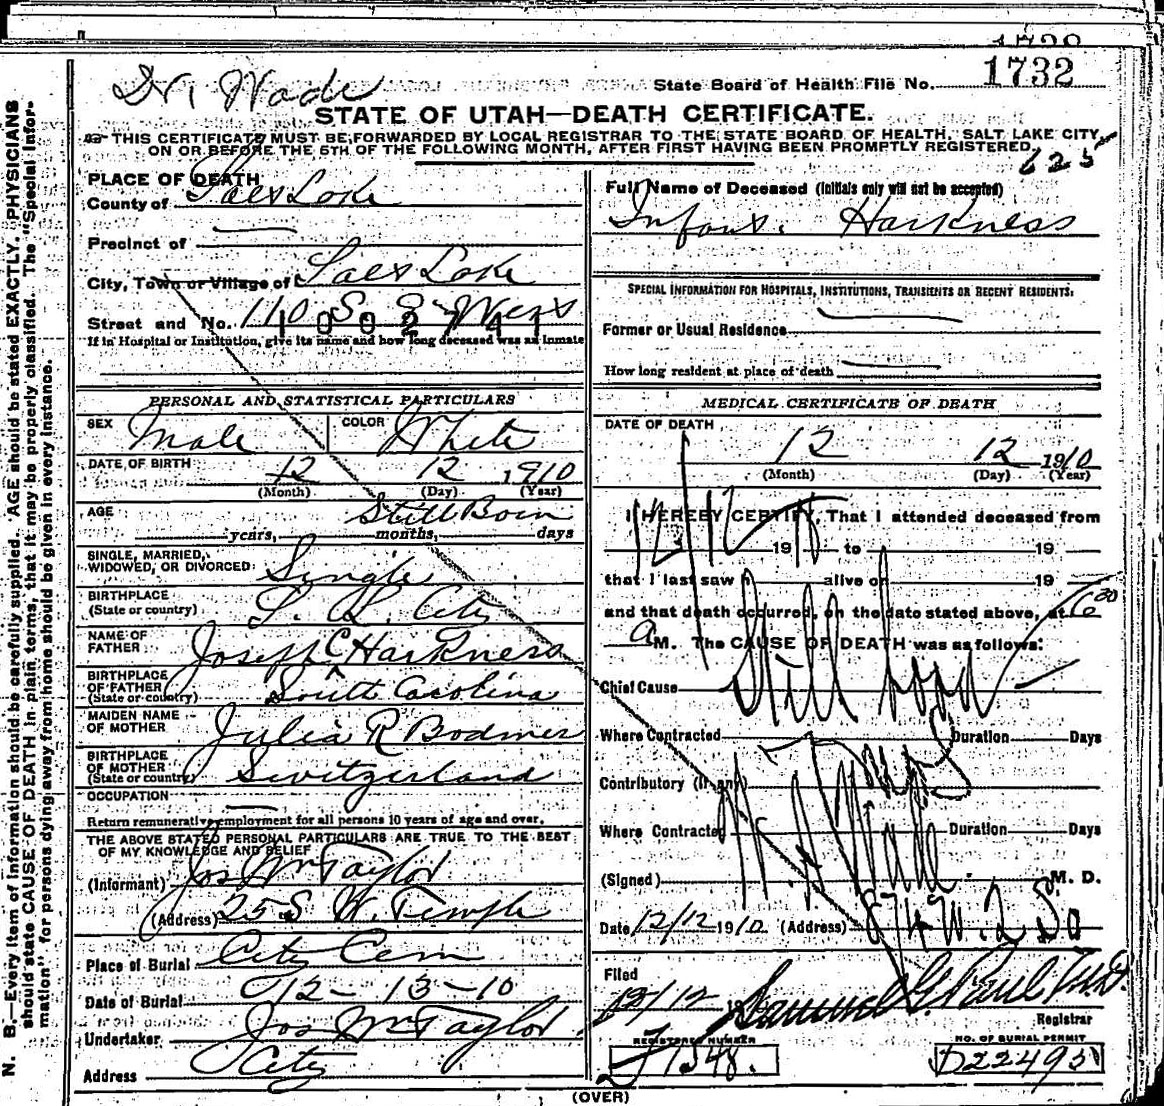 1732
Dr. Wade
State Board of Health File No. 1732
STATE OF UTAH—DEATH CERTIFICATE.
THIS CERTIFICATE MUST BE FORWARDED BY LOCAL REGISTRAR TO THE STATE BOARD OF HEALTH, SALT LAKE CITY,
ON OR BEFORE THE 5TH OF THE FOLLOWING MONTH, AFTER FIRST HAVING BEEN PROMPTLY REGISTERED.
625
PLACE OF DEATH
County of Salt Lake
Precinct of
City, Town or Village of Salt Lake
Street and No. 110 S 8 West
1002741
If in Hospital or Institution, give its name and how long deceased was an inmate
PERSONAL AND STATISTICAL PARTICULARS
SEX Male COLOR White
DATE OF BIRTH 12 12 1910
(Month) (Day) (Year)
AGE Still Born
years, months, days
SINGLE, MARRIED,
WIDOWED, OR DIVORCED Single
BIRTHPLACE
(State or country) S. L. City
NAME OF
FATHER Joseph C Harkness
BIRTHPLACE
OF FATHER
(State or country) South Carolina
MAIDEN NAME
OF MOTHER Julia R Bodmer
BIRTHPLACE
OF MOTHER
(State or country) Switzerland
OCCUPATION
Return remunerative employment for all persons 10 years of age and over.
THE ABOVE STATED PERSONAL PARTICULARS ARE TRUE TO THE BEST
OF MY KNOWLEDGE AND BELIEF
(Informant) Jos Wm Taylor
(Address) 25 S W. Temple
Place of Burial City Cem
Date of Burial 12-13-10
Undertaker Jos Wm Taylor
Address City
Full Name of Deceased (Initials only will not be accepted)
Infant. Harkness
SPECIAL INFORMATION FOR HOSPITALS, INSTITUTIONS, TRANSIENTS OR RECENT RESIDENTS:
Former or Usual Residence
How long resident at place of death
MEDICAL CERTIFICATE OF DEATH
DATE OF DEATH
12 12 1910
(Month) (Day) (Year)
I HEREBY CERTIFY, That I attended deceased from
12/12 19 to 19
that I last saw h alive on 19
and that death occurred, on the date stated above, at 6 30
a M. The CAUSE OF DEATH was as follows:
Chief Cause Still born
Where Contracted Duration Days
Contributory (if any)
Where Contracted Duration Days
(Signed) Wade M. D.
Date 12/12 1910 (Address) W. 2 So
Filed
12/12 19 Samuel G. Paul M.D.
Registrar
REGISTERED NUMBER
1548.
NO. OF BURIAL PERMIT
D22495
(OVER)
N. B.—Every item of information should be carefully supplied. AGE should be stated EXACTLY. PHYSICIANS
should state CAUSE OF DEATH in plain terms, that it may be properly classified. The "Special Infor-
mation" for persons dying away from home should be given in every instance.